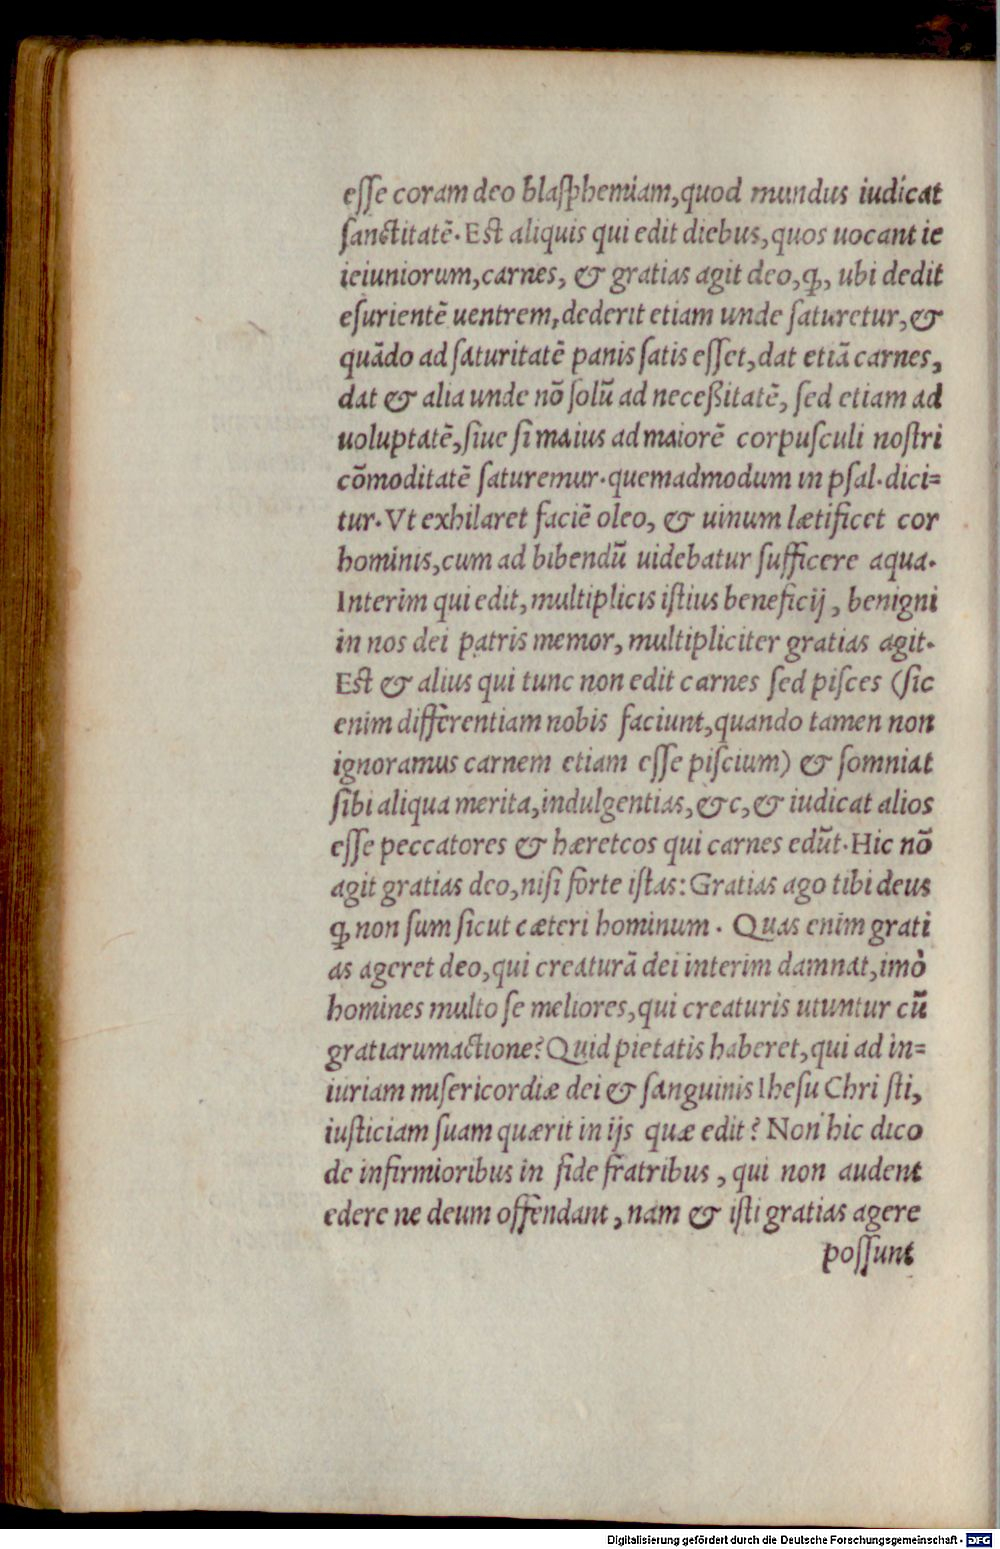 esse coram deo blasphemiam,quod mundus iudicat
sanctitatē. Est aliquis qui edit diebus,quos uocant ie
ieiuniorum,carnes, & gratias agit deo,ꝙ, ubi dedit
esurientē uentrem,dederit etiam unde saturetur,&
quādo ad saturitatē panis satis esset,dat etiā carnes,
dat & alia unde nō solū ad neceßitatē, sed etiam ad
uoluptatē,siue si maius ad maiorē corpusculi nostri
cōmoditatē saturemur.quemadmodum in psal.dici=
tur.Vt exhilaret faciē oleo, & uinum lætificet cor
hominis,cum ad bibendū uidebatur sufficere aqua.
Interim qui edit,multiplicis istius beneficij, benigni
in nos dei patris memor, multipliciter gratias agit.
Est & alius qui tunc non edit carnes sed pisces (sic
enim differentiam nobis faciunt,quando tamen non
ignoramus carnem etiam esse piscium) & somniat
sibi aliqua merita,indulgentias,&c,& iudicat alios
esse peccatores & hæretcos qui carnes edūt.Hic nō
agit gratias deo,nisi forte istas:Gratias ago tibi deus
ꝙ non sum sicut cæteri hominum. Quas enim grati
as ageret deo,qui creaturā dei interim damnat,imò
homines multo se meliores,qui creaturis utuntur cū
gratiarumactione?Quid pietatis haberet,qui ad in=
iuriam misericordiæ dei & sanguinis Ihesu Chri sti,
iusticiam suam quærit in ijs quæ edit? Non hic dico
de infirmioribus in fide fratribus, qui non audent
edere ne deum offendant, nam & isti gratias agere
possunt
Digitalisierung gefördert durch die Deutsche Forschungsgemeinschaft - DFG